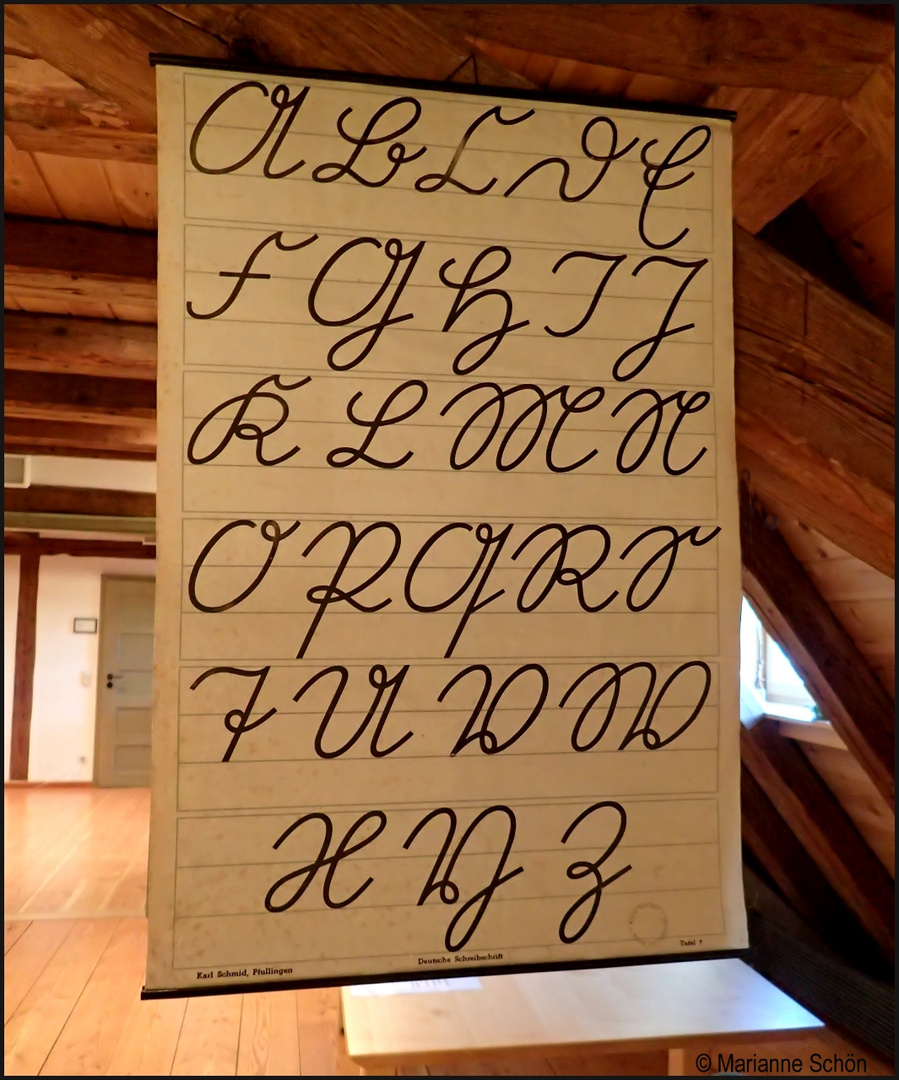 A B C D E
F G H I J
K L M N
O P Q R S
T U V W
X Y Z
Karl Schmid, Pfullingen
Deutsche Schreibschrift
Tafel 7
© Marianne Schön